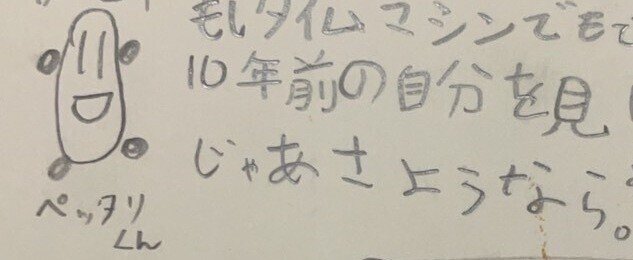 もしタイムマシンでもで
10年前の自分を見
じゃあさようなら。
ペッタリ
くん